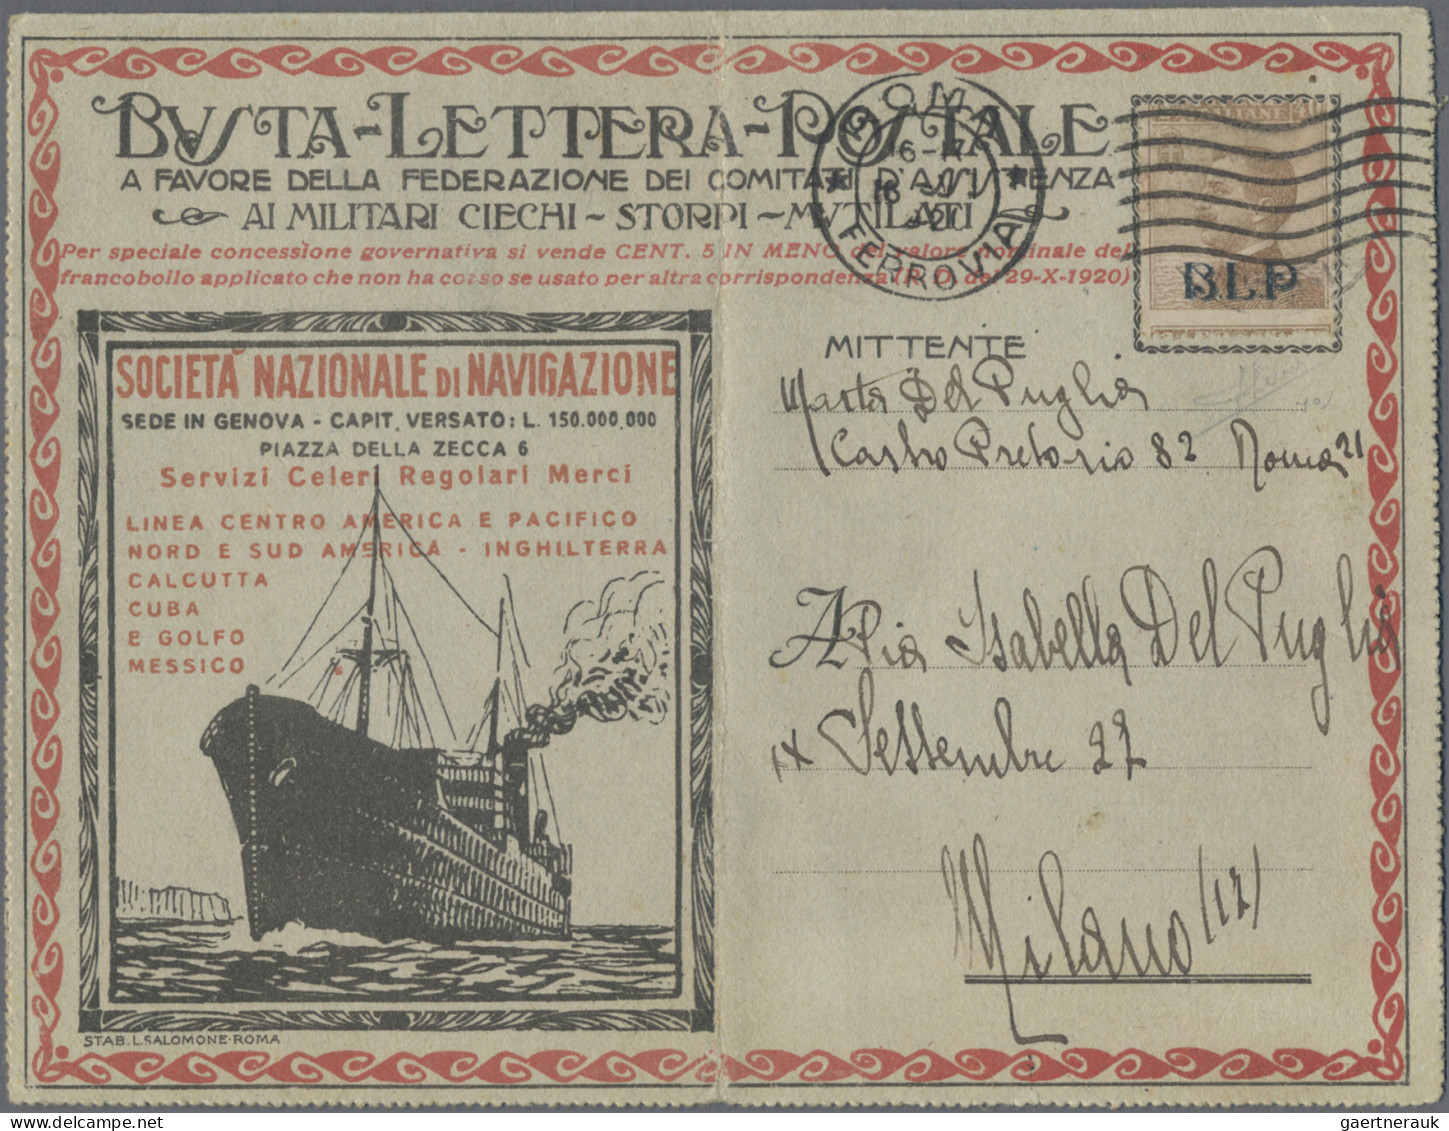 BUSTA-LETTERA-POSTALE
A FAVORE DELLA FEDERAZIONE DEI COMITATI D'ASSISTENZA
AI MILITARI CIECHI - STORPI - MUTILATI
Per speciale concessione governativa si vende CENT. 5 IN MENO del valore nominale del
francobollo applicato che non ha corso se usato per altra corrispondenza (R. D. del 29-X-1920)
ROMA
16-17
FERROVIA
B.L.P
SOCIETÀ NAZIONALE DI NAVIGAZIONE
SEDE IN GENOVA - CAPIT. VERSATO: L. 150.000.000
PIAZZA DELLA ZECCA 6
Servizi Celeri Regolari Merci
LINEA CENTRO AMERICA E PACIFICO
NORD E SUD AMERICA - INGHILTERRA
CALCUTTA
CUBA
E GOLFO
MESSICO
STAB. L. SALOMONE-ROMA
MITTENTE
Marta Del Puglia
Castro Pretorio 82 Roma 21
A Pia Isabella Del Puglia
IX Settembre 22
Milano (12)
gaertnerauk